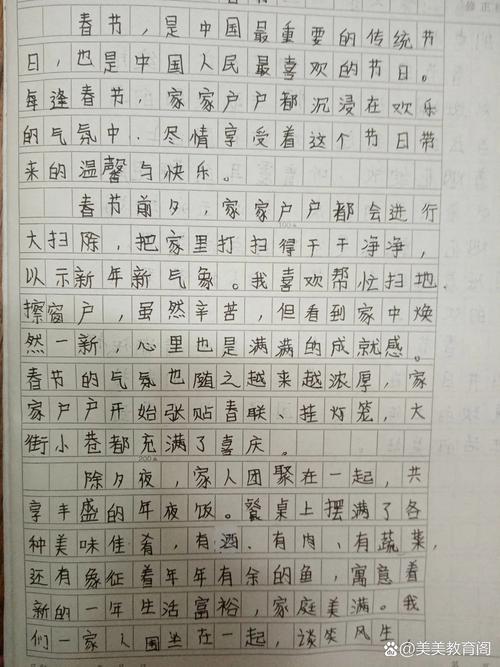 春节，是中国最重要的传统节
日，也是中国人民最喜欢的节日。
每逢春节，家家户户都沉浸在欢乐
的气氛中.尽情享受着这个节日带
来的温馨与快乐。
春节前夕，家家户户都会进行
100字
大扫除，把家里打扫得干干净净，
以示新年新气象。我喜欢帮忙扫地、
擦窗户，虽然辛苦，但看到家中焕
然一新，心里也是满满的成就感。
春节的气氛也随之越来越浓厚，家
家户户开始张贴春联、挂灯笼，大
街小巷都充满了喜庆。
200字
除夕夜，家人团聚在一起，共
享丰盛的年夜饭。餐桌上摆满了各
种美味佳肴，有酒、有肉、有蔬菜，
还有象征着年年有余的鱼，寓意着
新的一年生活富裕，家庭美满。我
们一家人围坐在一起，谈笑风生，
@美美教育阁